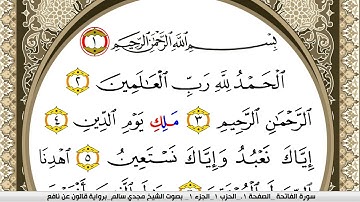 بِسْمِ اللَّهِ الرَّحْمَٰنِ الرَّحِيمِ ١
الْحَمْدُ لِلَّهِ رَبِّ الْعَالَمِينَ ٢
الرَّحْمَٰنِ الرَّحِيمِ ٣ مَلِكِ يَوْمِ الدِّينِ ٤
إِيَّاكَ نَعْبُدُ وَإِيَّاكَ نَسْتَعِينُ ٥ اهْدِنَا
سورة الفاتحة _ الصفحة ١ _ الحزب ١ _ الجزء ١ _ بصوت الشيخ مجدي سالم _ برواية قالون عن نافع